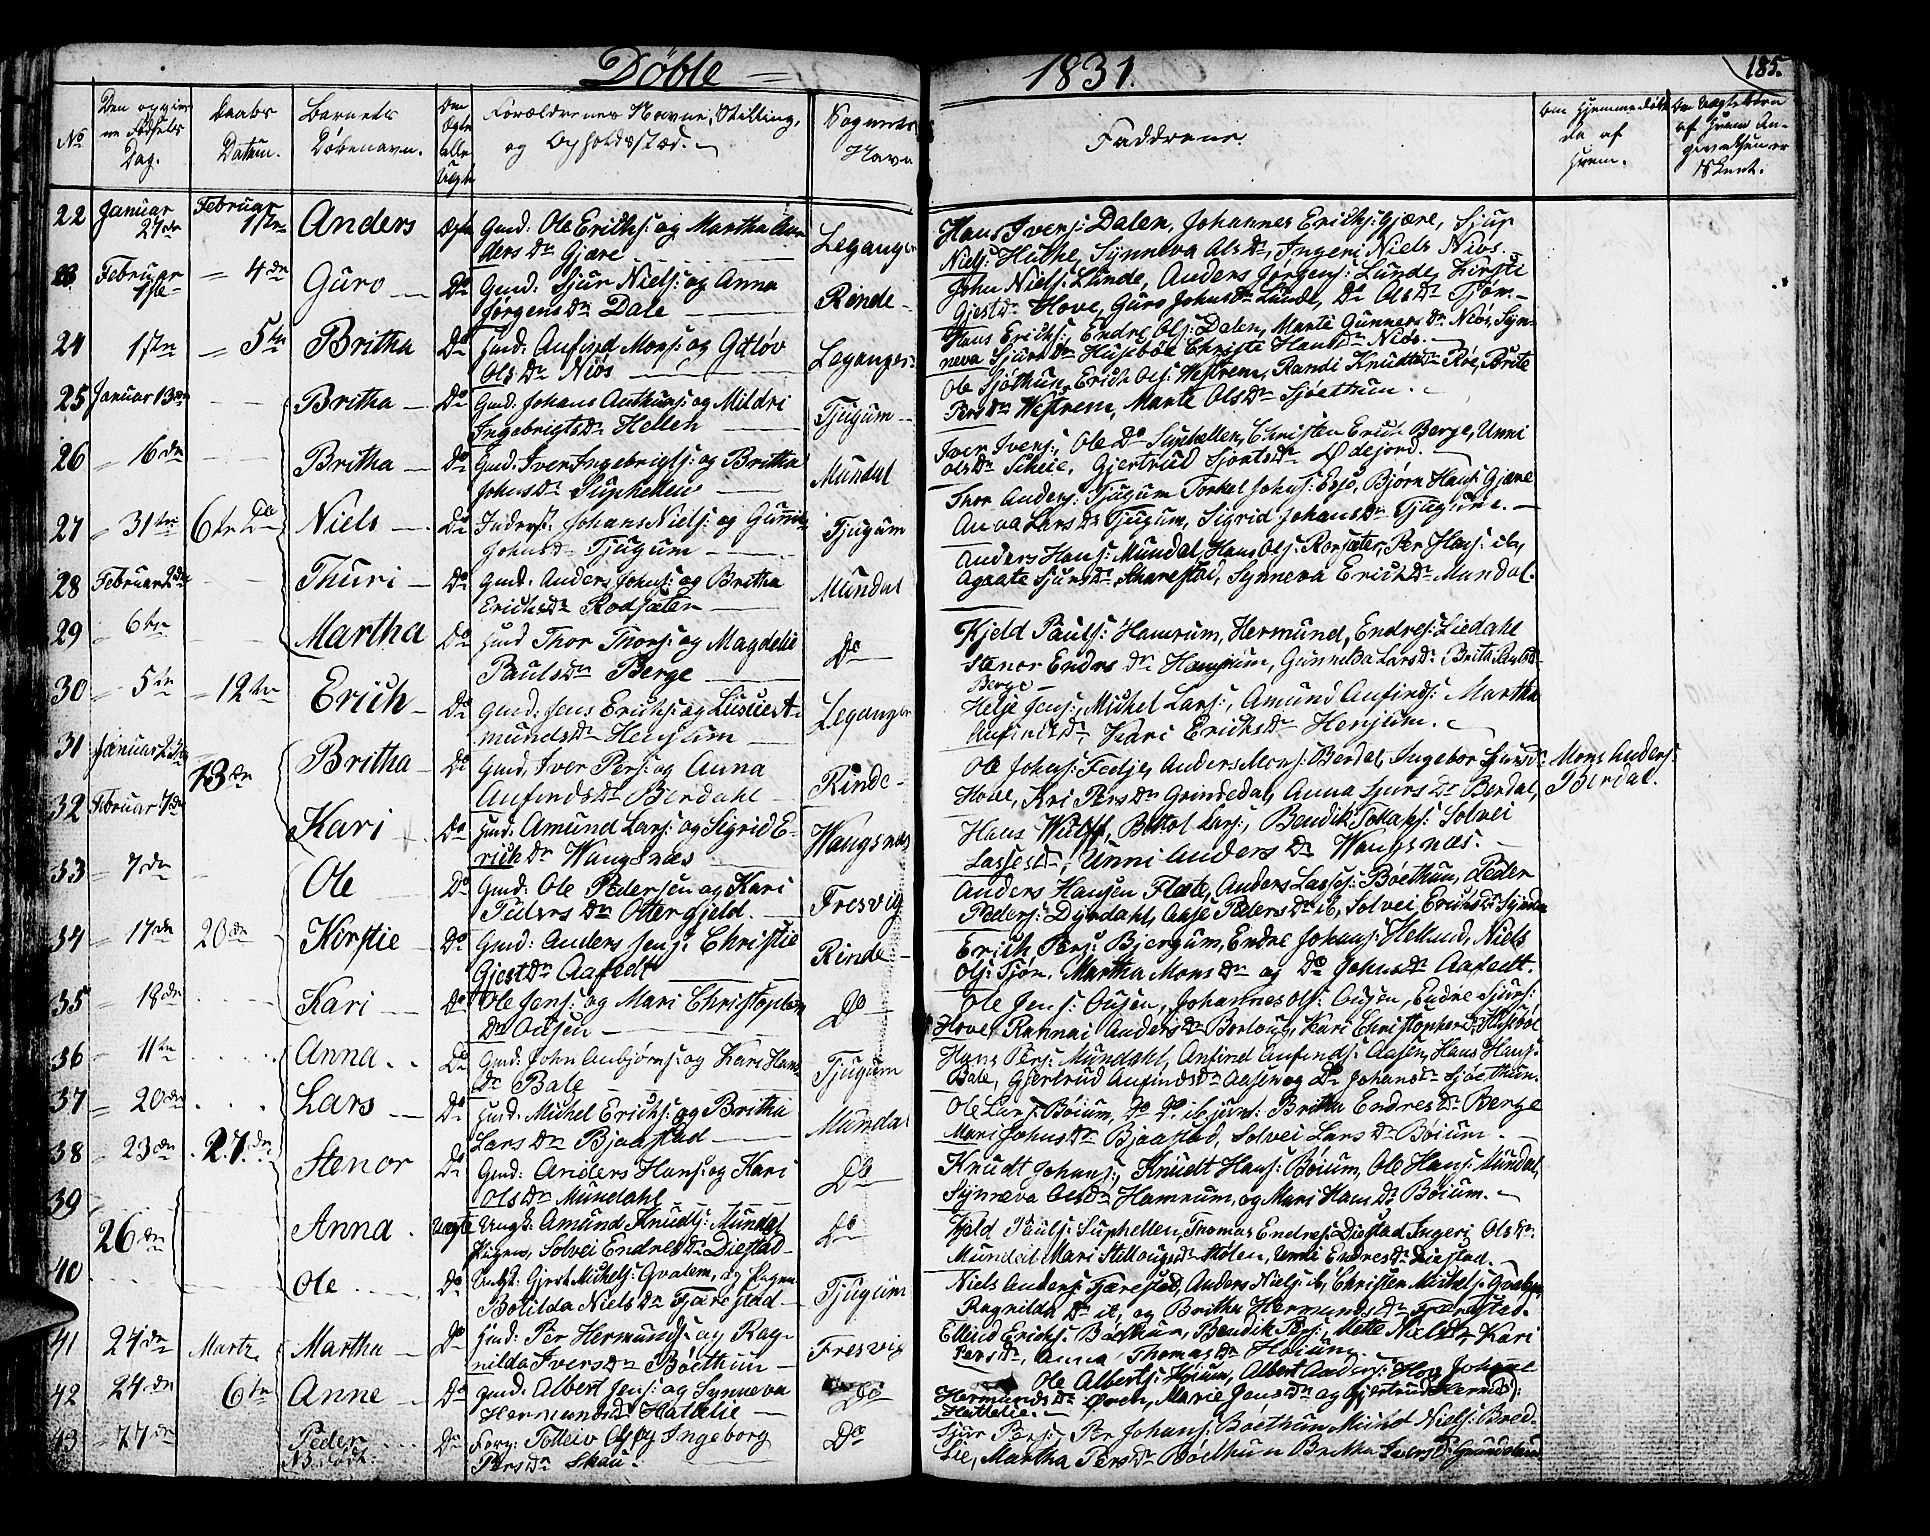 Døbte 1831.
185.
No
Den opgivne Fødsels Dag.
Daabs Datum.
Barnets Døbenavn.
Forældrenes Navne, Stilling, og Opholdssted.
Sognets Navn
Faddrene.
Om Hjemmedøbt da af hvem.
22 Januar 27de Februar 1ste Anders Ægte Gmd: Ole Erichs: og Martha An-
ders Dr Gjære Leganger
Hans Ivers: Dalen, Johannes Erichs: Gjære, Sjur
Niels: Huthe, Synneva Ols Dr, Ingeri Niels Niøs
23 Februar 1ste 4de Guro Do Gmd: Sjur Niels: og Anna
Jørgens Dr Dale Rinde
John Niels: Lunde, Anders Jørgens: Lunde, Kirsti
Gjest Dr Hove, Guro Johns Dr Lunde, Do Ols Dr Tjøn
24 1ste 5te Britha Do Gmd: Anfind Mons: og Gitløv
Ols Dr Niøs Leganger
Hans Erichs:, Endre Ols: Dalen, Marte Gunners Dr Niøs, Syn-
neva Sjurs Dr Husebøe Christe Hans Dr Niøs.
25 Januar 13de Britha Do Gmd: Johans Anthuns: og Mildri
Ingebrigts Dr Hellen Tjugum
Ole Sjøthun, Erich Ols: Westrem, Randi Knudts Dr Røe, Brite
Pers Dr Westrem, Marte Ols Dr Sjøethun.
26 16de Britha Do Gmd: Iver Ingebrigts: og Britha
Johns Dr Suphellen Mundal
Iver Ivers:, Ole Do Suphellen, Christen Erich Berge, Unni
Ols Dr Scheie, Gjertrud Sjonts Dr Ødejord.
27 31te 6te Do Niels Do Inderst: Johans Niels: og Gunni
Johns Dr Tjugum Tjugum
Thor Anders: Tjugum Torkel Johns: Esse, Bjørn Hans: Gjære
Anna Lars Dr Tjugum, Sigrid Johans Dr Tjugum.
28 Februar 2den Thuri Do Gmd: Anders Johns: og Britha
Erichs Dr Rodsæter Mundal
Anders Hans: Mundal, Hans Ols: Rorsæter, Per Hans: ib,
Agaate Sjurs Dr Skarestad, Synneva Erich Dr Mundal.
29 6te Martha Do Gmd Thor Thors: og Magdeli
Pauls Dr Berge Do
Kjeld Pauls: Hamrum, Hermund, Endres: Liedahl
Stenor Endres Dr Hamrum, Gunnilda Lars Dr Brita
Berge
30 5te 12te Erich Do Gmd: Jens Erichs: og Lusie A-
munds Dr Henjum Leganger
Helje Jens:, Michel Lars:, Amund Anfinds: Martha
Anfinds Dr, Kari Erichs Dr Henjum.
31 Januar 13de Britha Do Gmd, Iver Pers: og Anna
Anfinds Dr Berdahl Rinde
Ole Johns: Fedje, Anders Mons: Berdal, Ingebor Sjurs Dr
Hove, Kri Pers Dr Grindedal, Anna Sjurs Dr Berdal,
Mons Anders: Berdal.
32 Februar 7de Kari Do Gmd: Amund Lars: og Sigrid E-
rich Dr Wangsnæs Wangsnæs
Hans Wulff, Bottol Lars:, Bendik Solvei
Lasses Dr, Unni Anders Dr Wangsnæs.
33 7de Ole Do Gmd: Ole Pedersen og Kari
Peders Dr Ottergjeld. Fresvig
Anders Hansen Flete, Anders Lasses: Bøethun, Peder
Peders: Dyrdahl, Aase Peders Dr ib, Solvei Erichs Dr
34 17de 20de Kirstie Do Gmd: Anders Jens: Christie
Gjest Dr Aafedt Rinde
Erich Pers: Bjergum, Endre Johans: Hellund, Niels
Ols: Tjøn, Martha Mons Dr og Do Johns Dr Aafedt.
35 18de Kari Do Ole Jens: og Mari Christophers
Dr Ousen Do
Ole Jens: Ousen, Johannes Ols: Ousen, Endre Sjurs:
Hove, Rannai Anders Dr Berloug, Kari Christophers Dr Husebøe
36 11te Anna Do Gmd: John Anbjørns: og Kari Hans
Dr Bale Tjugum
Hans Pers: Mundahl, Anfind Anfinds: Aasen, Hans Hans:
Bale, Gjertrud Anfinds Dr Aasen og Do Johans Dr Sjøethun.
37 20de Lars Do Gmd: Michel Erichs: og Britha
Lars Dr Bjaastad Mundal
Ole Lars: Bøium, Do Do ib jun: Britha Endres Dr Berge
Mari Johns Dr Bjaastad, Solvei Lars Dr Bøium.
38 23de 27de Stenor Do Gmd: Anders Hans: og Kari
Ols Dr Mundahl Do
Knudt Johans:, Knudt Hans: Bøium, Ole Hans: Mundal,
Synneva Ols Dr Hamrum, og Mari Hans Dr Bøium.
39 26de Anna Uægte Ungk: Amund Knudts: Mundal
Pigen, Solvei Endres Dr Diestad Do
Kield Pauls: Suphellen, Thomas Endres: Diestad Ingeri Ols Dr
Mundal Mari Stellougs Dr Stølen, Unni Endres Dr Diestad.
40 Ole Do Ungk: Gjert Michels: Gvalem, og Pigen
Botilda Niels Dr Fjærestad Tjugum
Niels Anders: Fjærestad, Anders Niels: ib, Christen Michels: Gvalem,
Ragnilda Do ib, og Britha Hermunds Dr Fjærestad.
41 24de Martz Martha Do Gmd: Per Hermunds: og Rag-
nilda Ivers Dr Bøethun Fresvig
Ellend Erichs: Bøethun, Bendik Pers:, Mette Niels Dr Kari
Pers Dr, Anna Thomas Dr Høium.
42 24de 6te Anne Do Gmd: Albert Jens: og Synneva
Hermunds Dr Hatelie Do
Ole Alberts: Høium, Albert Anders: Hov, Johanne
Hermunds Dr Øvren, Marie Jens Dr og Gjertrud Hermd:
Hattelie.
43 27de Peder Do Forp: Tolleiv og Ingeborg
NB død: Pers Dr Skau. Do
Sjur Pers:, Per Johans: Bøethun, Michel Niels: Bred-
lie, Martha Pers Dr Bøethun Britha Ivers Dr